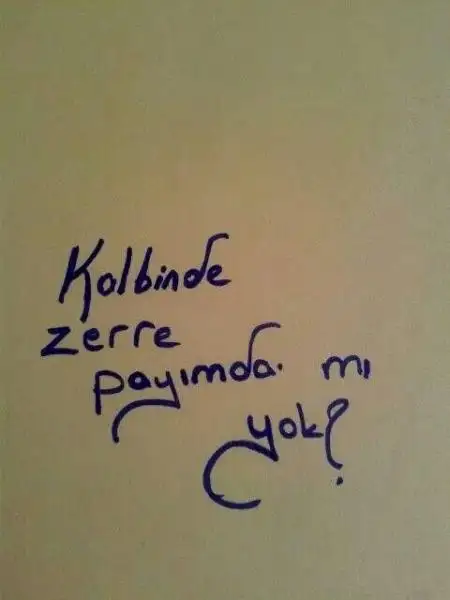 Kalbinde
zerre
payımda mı
yok?